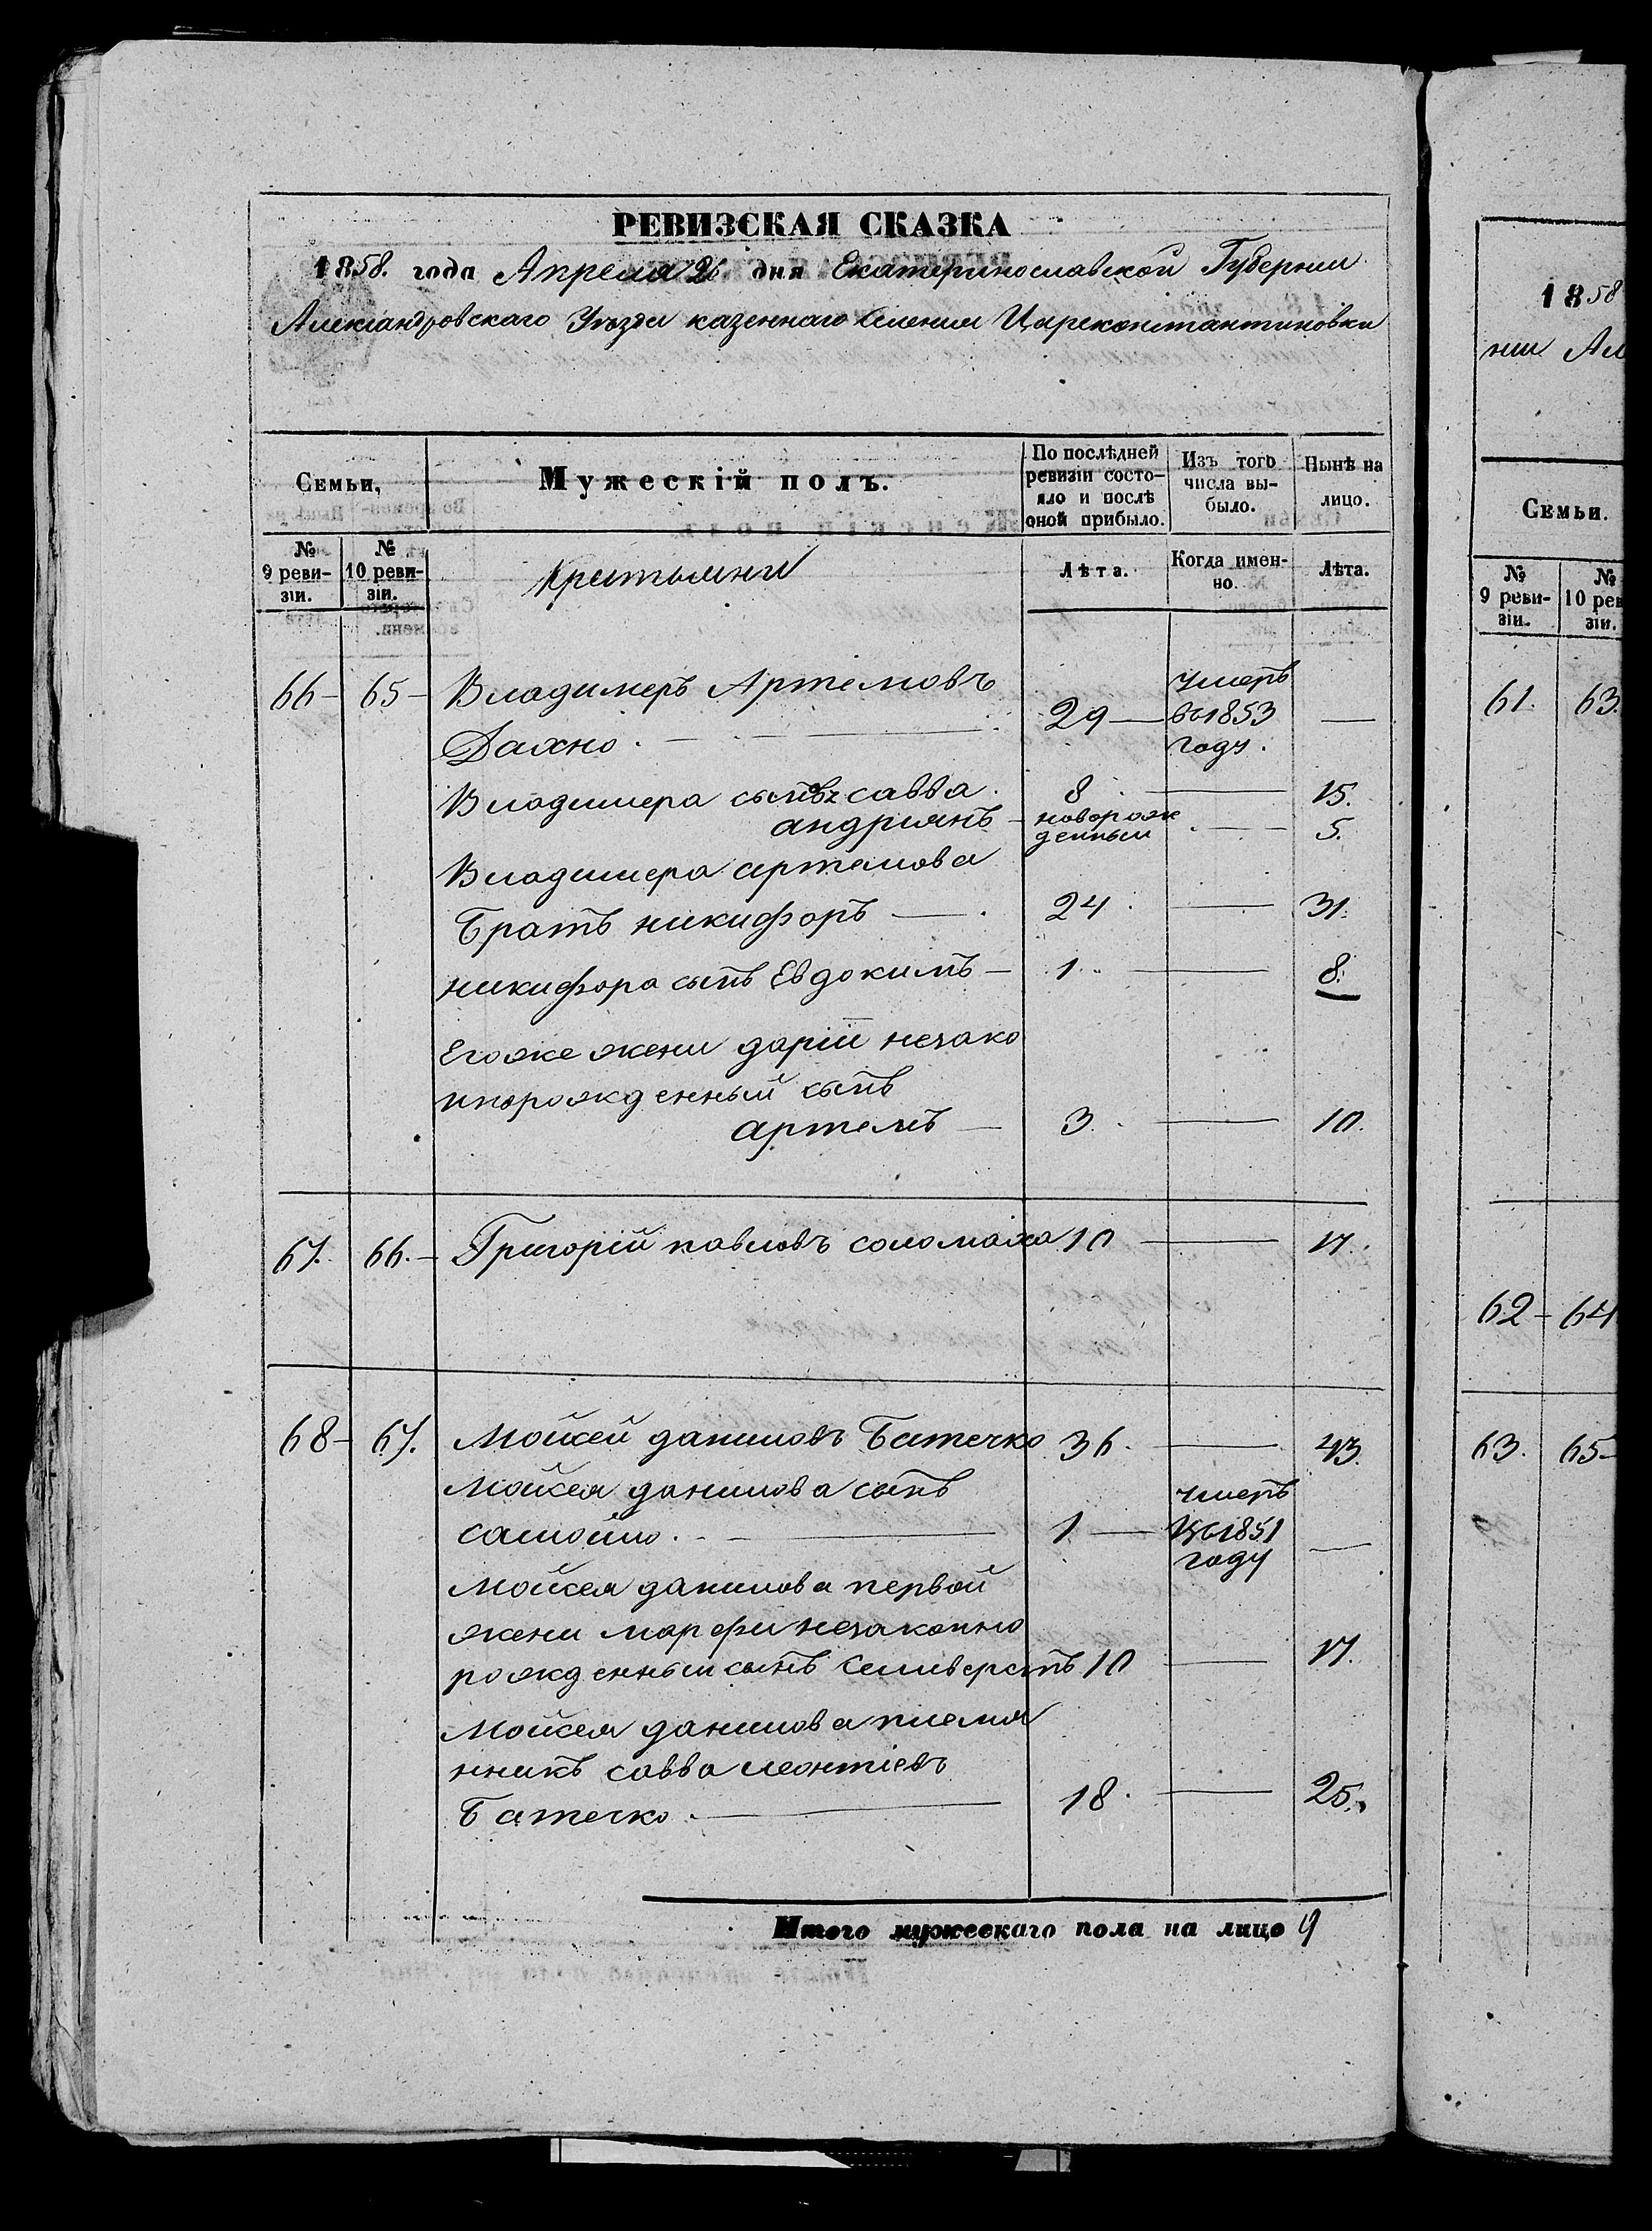 РЕВИЗСКАЯ СКАЗКА
1858. года Апреля 26 дня Екатеринославской Губернии
Александровскаго Уезда казеннаго Селения Цареконстантиновки
Семьи, Мужескій полъ. По послѣдней ревизіи состояло и послѣ оной прибыло. Изъ того числа выбыло. Нынѣ на лицо.
№ 9 ревизіи. № 10 ревизіи. Лѣта. Когда именно. Лѣта.
66 – 65 – Владимеръ Артемовъ
Дахно. 29 — умеръ въ 1853 году. —
Владимера сынъ савва. 8 — 15.
андриянъ – новорожденный — 5.
Владимера артемова
Братъ никифоръ — 24 — 31.
никифора сынъ Евдокимъ – 1. — 8.
Егоже жены дарiи незако
норожденный сынъ
артемъ — 3. — 10.
67. 66. – Григорій павловъ соломаха 10 — 17.
68 – 67. Мойсей даниловъ Батечко 36. — 43.
Мойсея данилова сынъ
самойло. — 1. — умеръ въ 1851 году —
Мойсея данилова первой
жены марфы незаконно
рожденный сынъ Селиверстъ 10 — 17.
Мойсея данилова племя
нникъ савва леонтіевъ
Батечко. — 18. — 25.
Итого мужескаго пола на лицо 9
1858
нии Ал
Семьи.
№ 9 ревизіи.
61. 63.
62 – 64
63. 65 –